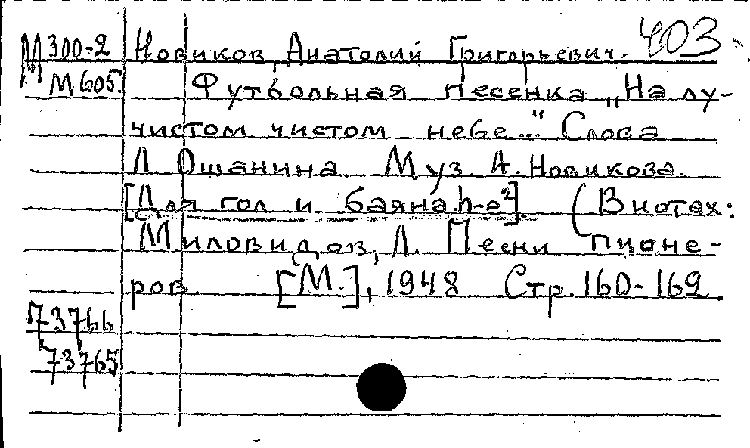 403
М 300-2 Новиков, Анатолий Григорьевич.
М 605 Футбольная песенка „На лу-
чистом, чистом небе..." Слова
Л. Ошанина. Муз. А. Новикова.
[Для гол. и баяна h-e²]. (В нотах:
Миловидов, Л. Песни пионе-
ров. [М.], 1948 Стр. 160-162
73766
73765